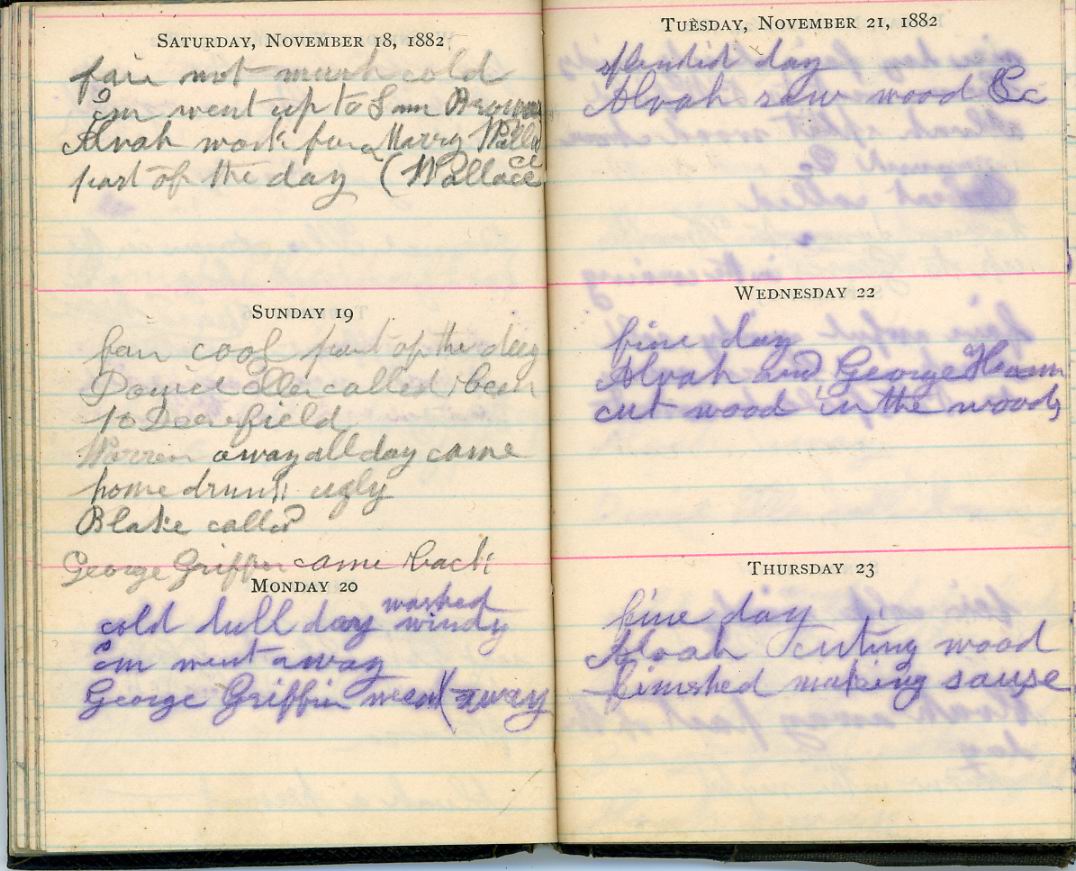 SATURDAY, NOVEMBER 18, 1882
fair not much cold
Em went up to Sam
Alvah work for Harry Walla
ce
part of the day (Wallace
SUNDAY 19
fair cool part of the day
called been
to Deerfield
Warren away all day came
home drunk ugly
Blake called
George Griffin came back
MONDAY 20
washed
cold dull day windy
Em went away
George Griffin went away
TUESDAY, NOVEMBER 21, 1882
splendid day
Alvah saw wood &c
WEDNESDAY 22
fine day
Alvah and George
cut wood in the woods
THURSDAY 23
fine day
Alvah cuting wood
finished making sause